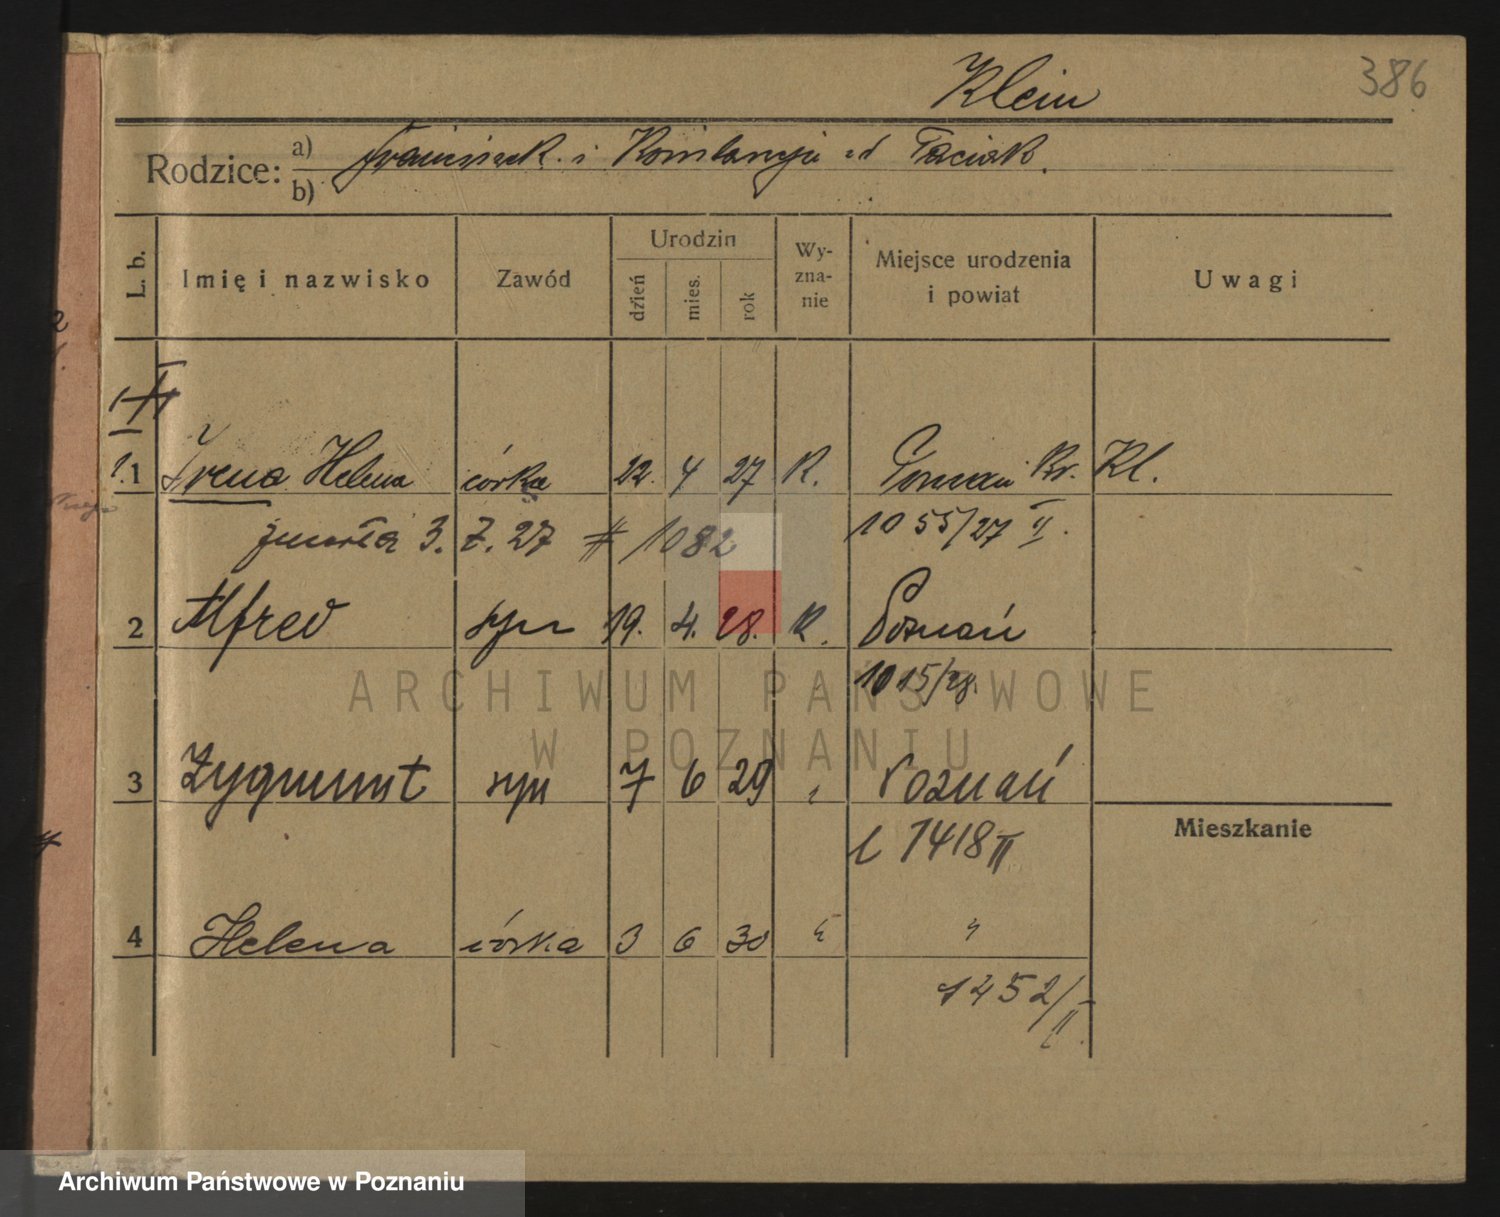 Klein
386
Rodzice: a) Franciszek i Konstancja zd Taciak.
b)
L. b. Imię i nazwisko Zawód Urodzin dzień mies. rok Wy-zna-nie Miejsce urodzenia i powiat Uwagi
1 Irena Helena córka 22. 4 27 K. Poznań Kr. Kl.
zmarła 3. 7. 27 # 1082 1055/27 II.
2 Alfred syn 19. 4. 28. K. Poznań
1015/28.
3 Zygmunt syn 7 6 29 " Poznań
L 1418 II
Mieszkanie
4 Helena córka 3 6 30 " "
1452/II
ARCHIWUM PAŃSTWOWE
W POZNANIU
Archiwum Państwowe w Poznaniu